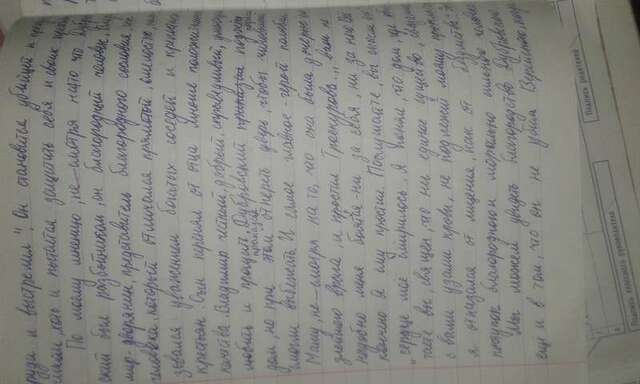 груди и выстрелил". Он становится убийцей и
хоть и пытается защитить себя и своих
По моему мнению, не-смотря на то что Дубров
ский был разбойником, он благородный человек.
мир-дворянин, представитель благородного сословия,
человека, который отличался прямотой, смелостью,
зовался уважением богатых соседей и
крестьян. Сын перенял от отца многие положительные
качества. Владимир честный, добрый, справедливый, умеющий
любить и прощать. Дубровский приказал поджечь
дом, но при этом приказал отпереть дверь, чтобы чиновники
смогли выбежать. И самое главное-герой полюбил
Машу, не-смотря на то, что она была дочерью
злейшего врага, и простил Троекурова. „ вам не
надобно меня боятся-ни за себя, ни за него.
кончено Я ему простил. Послушайте, вы спасли его"
„сердце мое смирилось, я понял, что дом, где
таете вы, священ, что ни единое существо, связанное
с вами узами крови, не подлежит моему проклятию
я отказался от мщения, как от безумства"-
поступок благородного и морально сильного человека
Мы можем увидеть благородство Дубровского
еще и в том, что он не убил Верейского, когда
Подпись классного руководителя
Подпись родителей